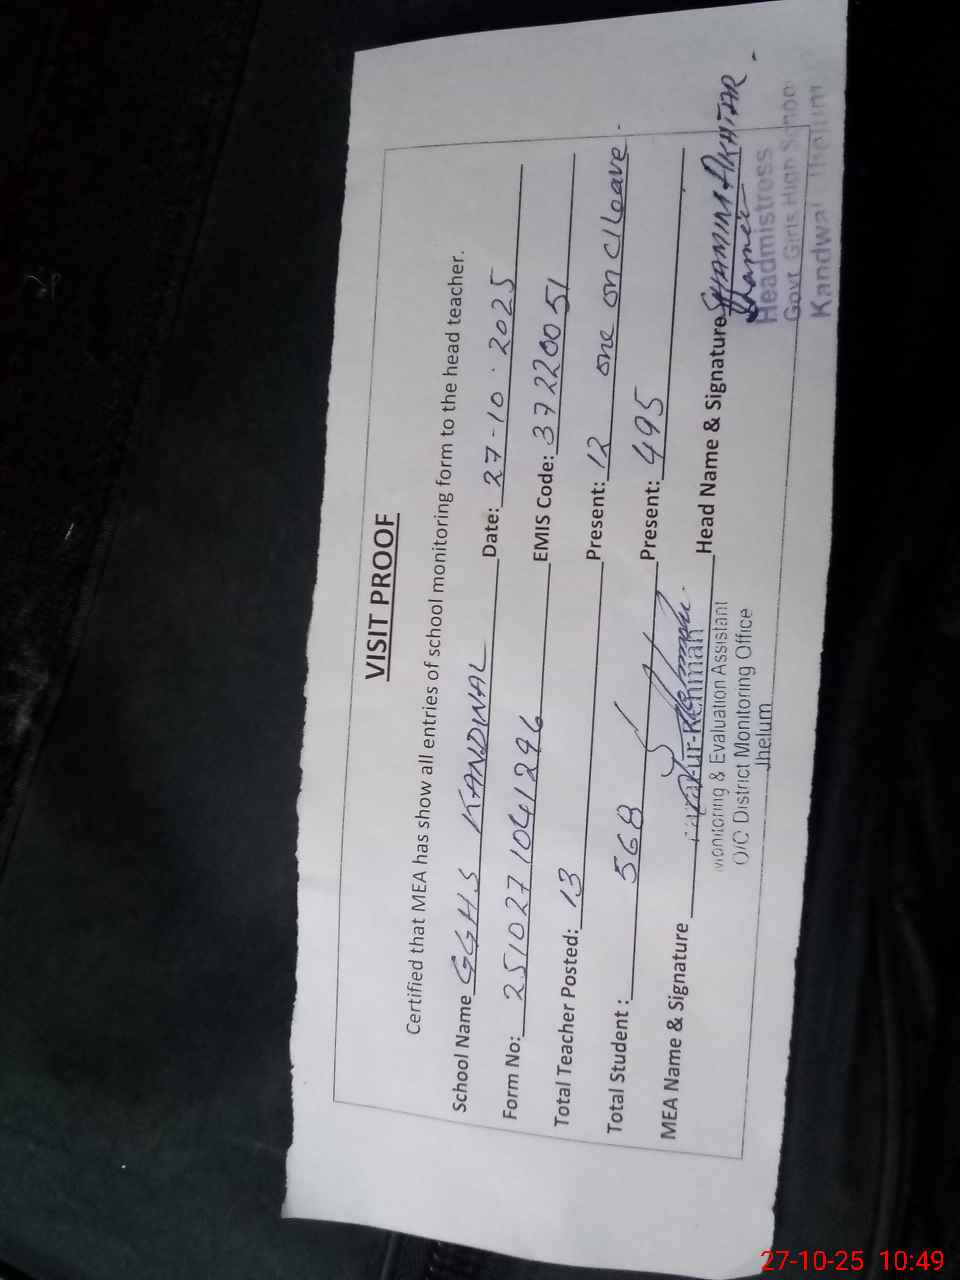 VISIT PROOF
Certified that MEA has show all entries of school monitoring form to the head teacher.
School Name GGHS KANDWAL Date: 27-10-2025
Form No: 2510271041296 EMIS Code: 37220051
Total Teacher Posted: 13 Present: 12 one on c/leave.
Total Student : 568 Present: 495
MEA Name & Signature Head Name & Signature SHAMIM AKHTAR
Monitoring & Evaluation Assistant
O/O District Monitoring Office
Jhelum
Headmistress
Govt. Girls High School
Kandwal Jhelum
27-10-25 10:49